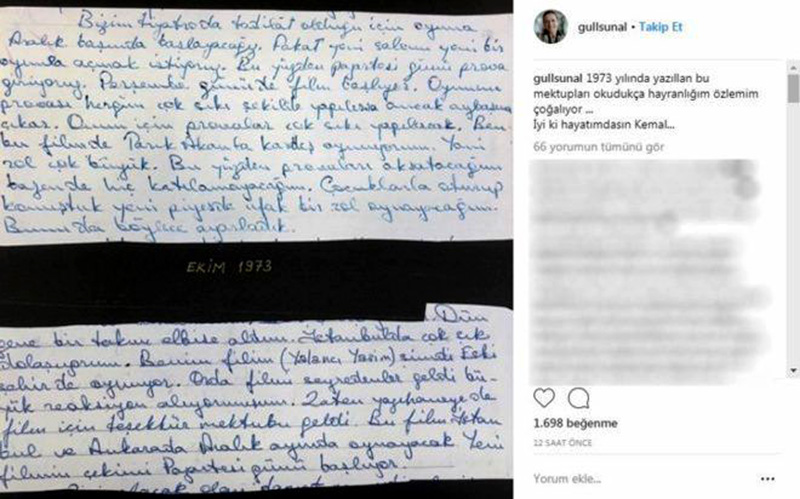 Bizim tiyatroda tadilât olduğu için oyuna
Aralık başında başlayacağız. Fakat yeni salonu yeni bir
oyunla açmak istiyoruz. Bu yüzden pazartesi günü prova
giriyoruz. Perşembe günü de film başlıyor. Oyunun
provası hergün çok sıkı şekilde yapılırsa ancak aybaşına
çıkar. Onun için provalar çok sıkı yapılacak. Ben
bu filmde Tarık Akanla kardeş oynuyorum. Yani
rol çok büyük. Bu yüzden provaları aksatacağım
bazende hiç katılamayacağım. Çocuklarla oturup
konuştuk yeni piyeste ufak bir rol oynayacağım.
Bunu da böylece ayarladık.
EKİM 1973
Dün
gene bir takım elbise aldım. İstanbulda çok şık
dolaşıyorum. Benim filim (Yalancı Yarim) şimdi Eski
şehir de oynuyor. Orda filmi seyredenler geldi bü-
yük reaksiyon alıyormuşum. Zaten yazıhaneye de
film için teşekkür mektubu geldi. Bu film İstan
bul ve Ankarada Aralık ayında oynayacak Yeni
filimin çekimi Pazartesi günü başlıyor.
gullsunal • Takip Et
gullsunal 1973 yılında yazıllan bu
mektupları okudukça hayranlığım özlemim
çoğalıyor ...
İyi ki hayatımdasın Kemal...
66 yorumun tümünü gör
1.698 beğenme
12 SAAT ÖNCE
Yorum ekle...